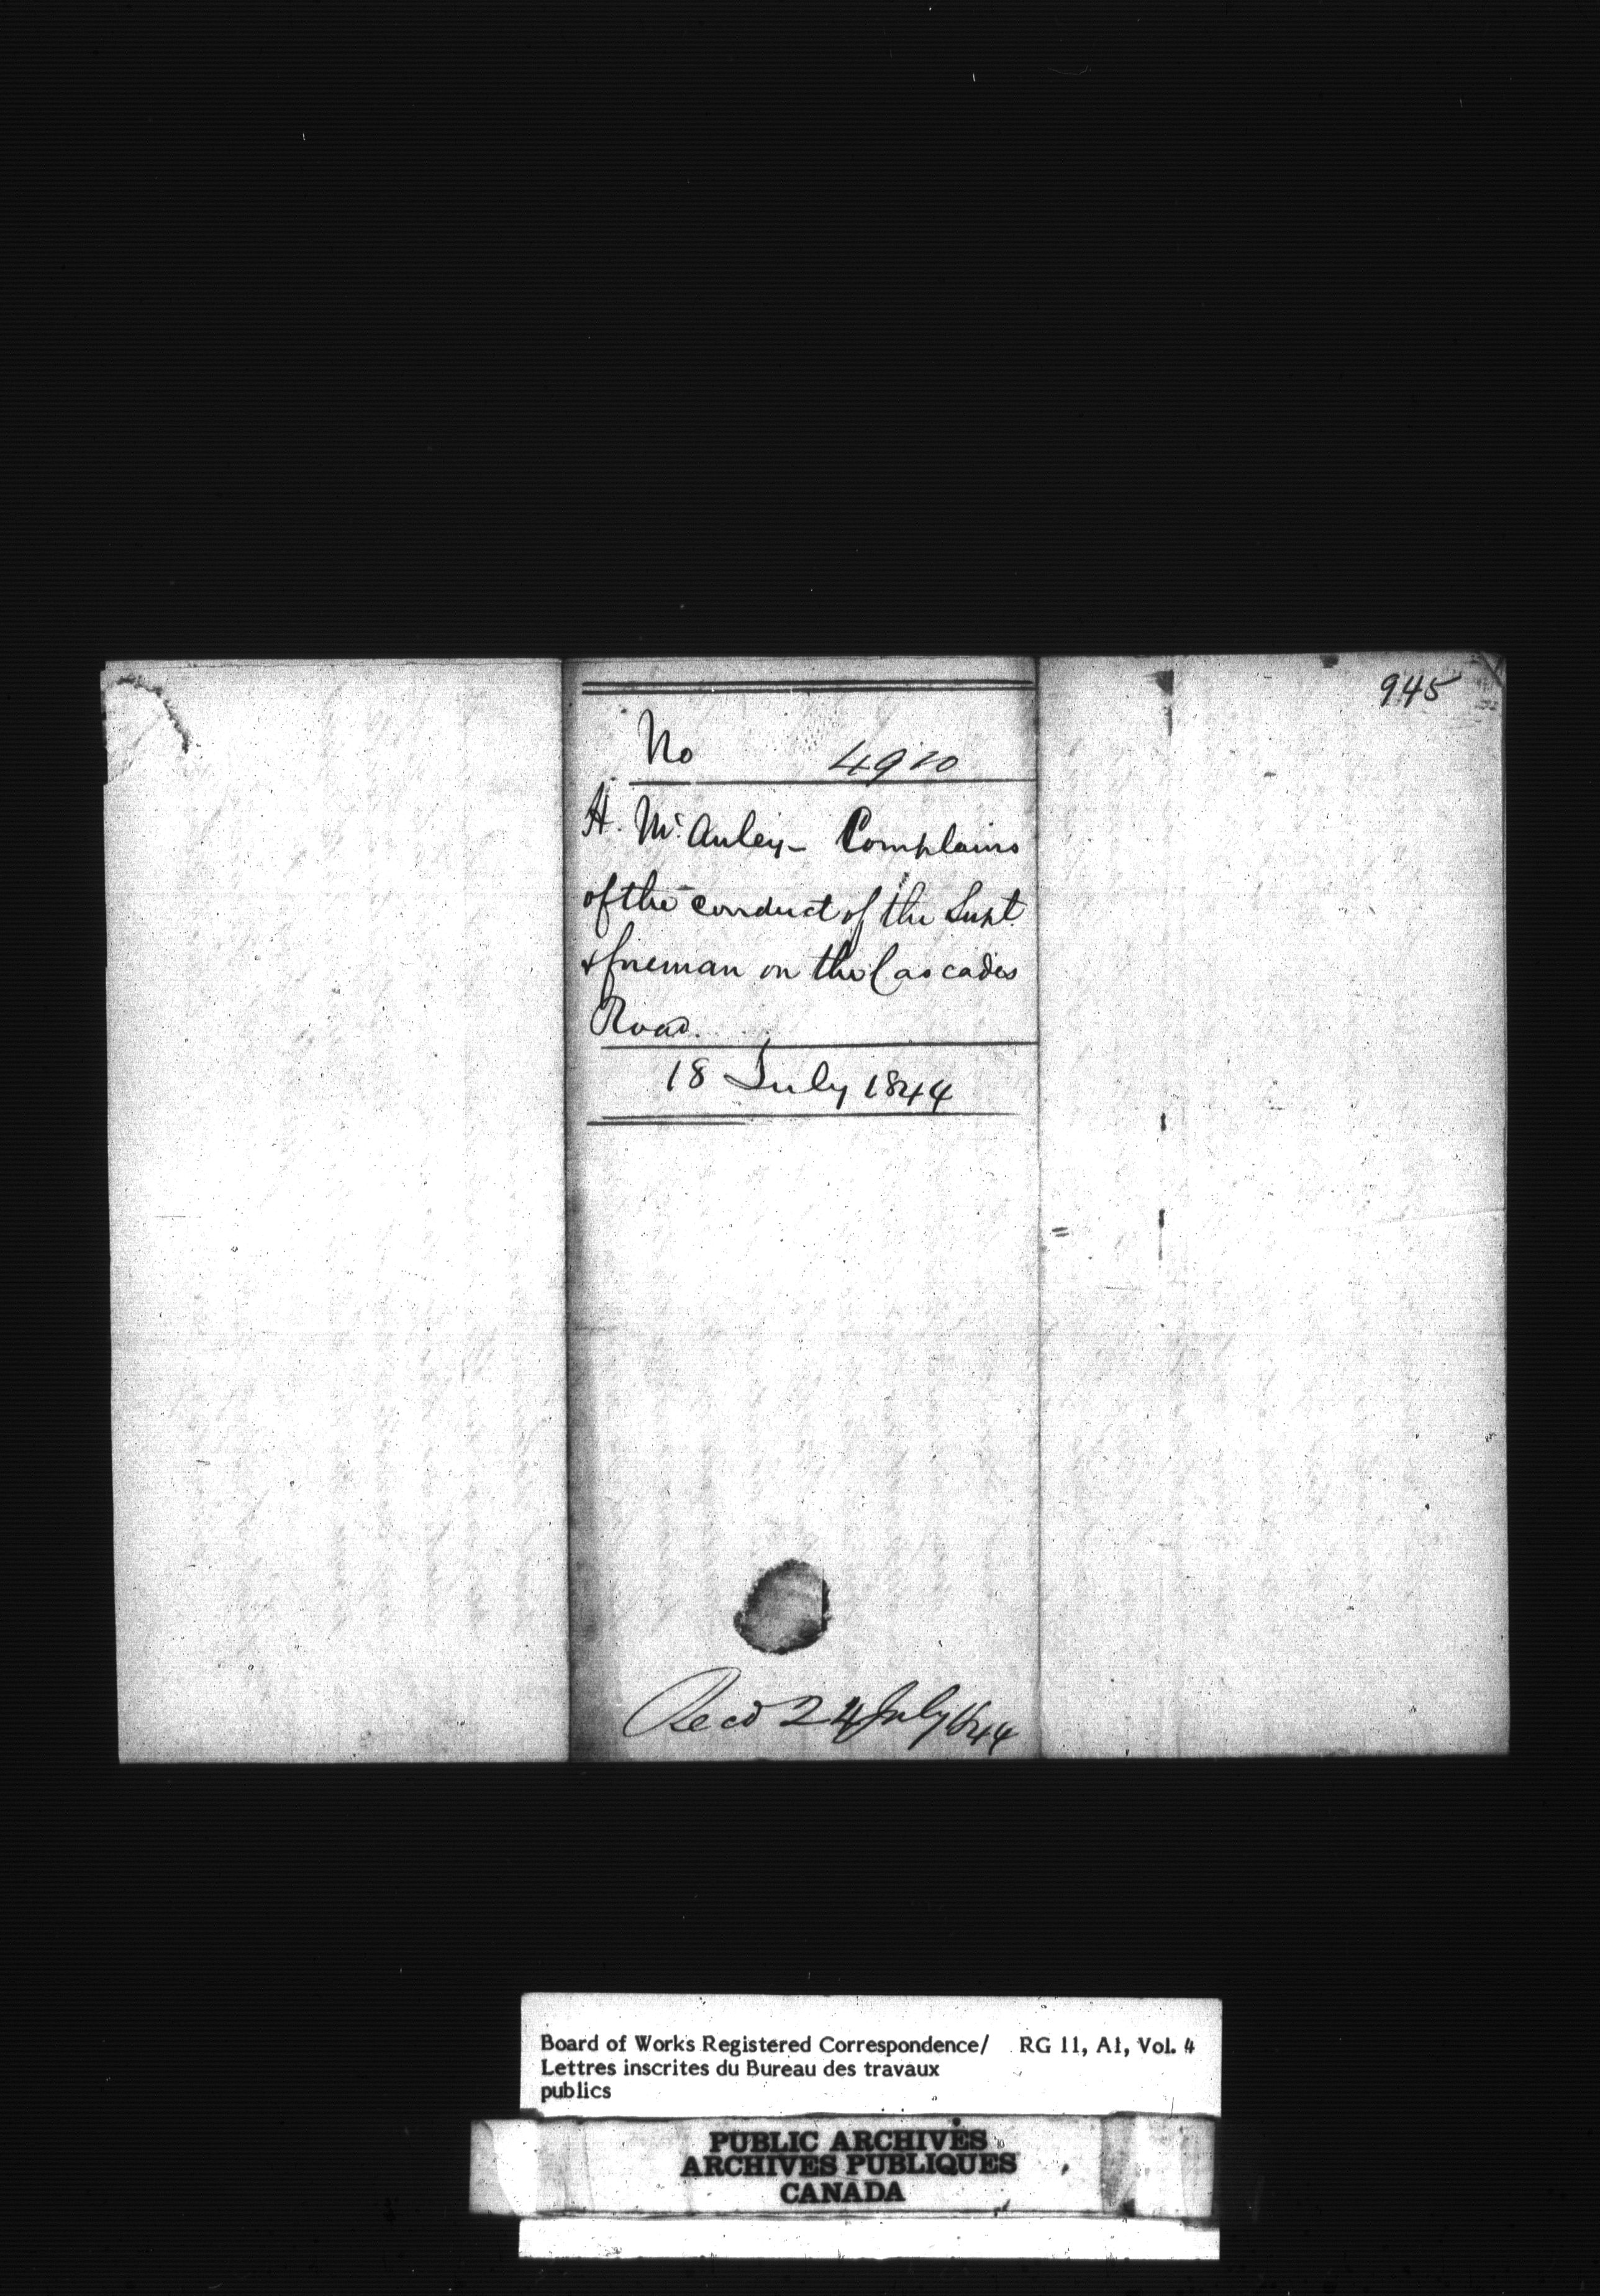 945
No 4910
H. McAuley - Complains
of the conduct of the Supt
& foreman on the Cascades
Road.
18 July 1844
Recd 24 July 1844
Board of Works Registered Correspondence/ RG 11, A1, Vol. 4
Lettres inscrites du Bureau des travaux
publics
PUBLIC ARCHIVES
ARCHIVES PUBLIQUES
CANADA